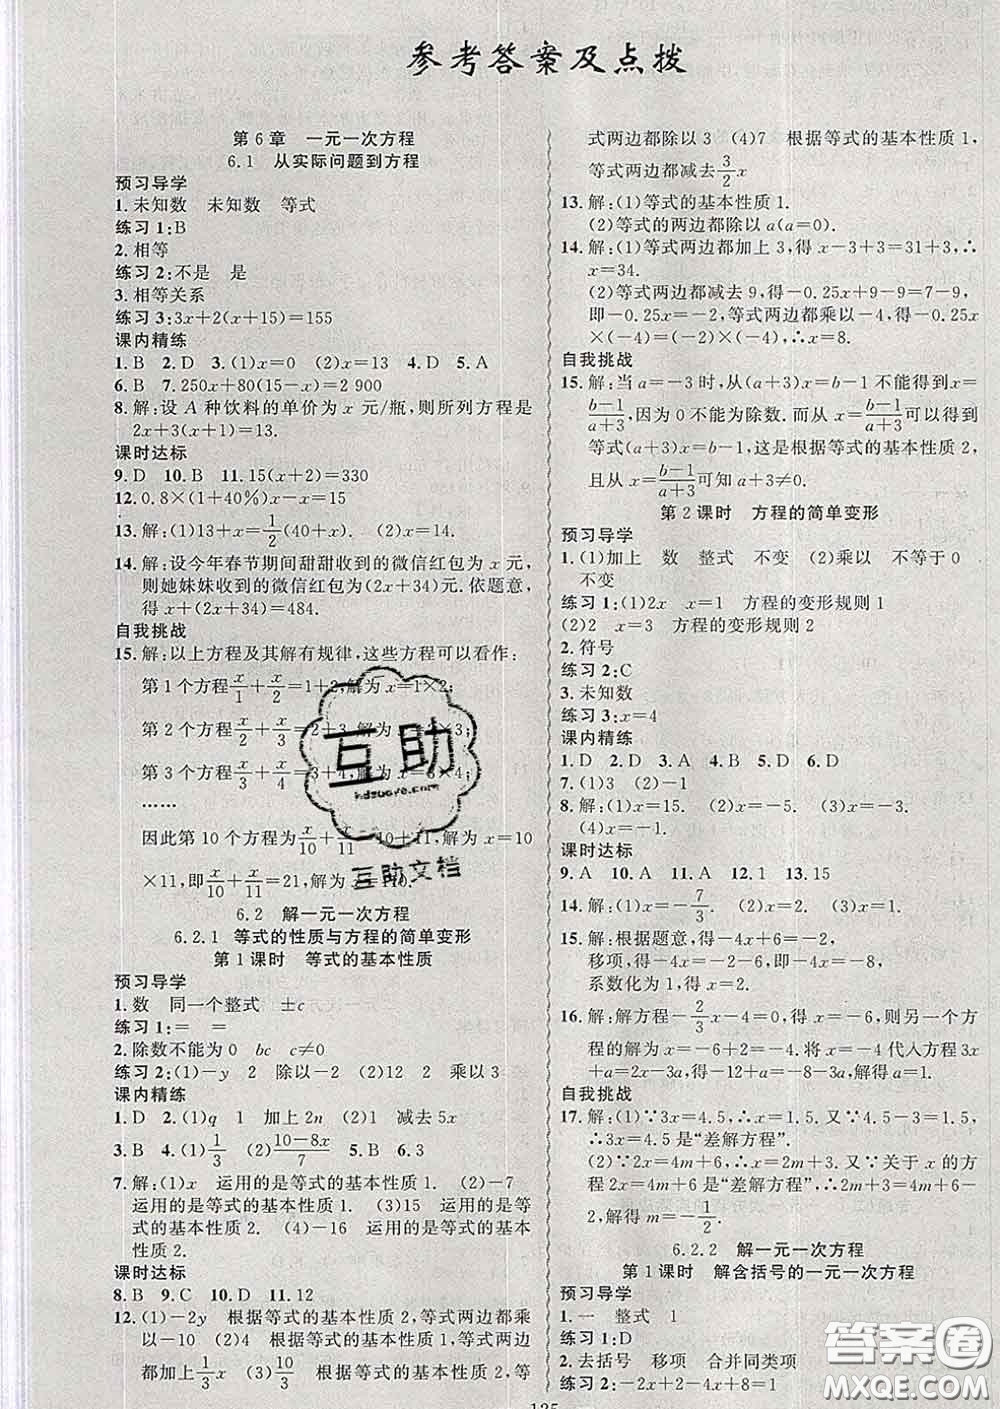 参考答案及点拨
第6章 一元一次方程
6.1 从实际问题到方程
预习导学
1.未知数 未知数 等式
练习1:B
2.相等
练习2:不是 是
3.相等关系
练习3:3x+2(x+15)=155
课内精练
1.B 2.D 3.(1)x=0 (2)x=13 4.D 5.A
6.B 7.250x+80(15-x)=2 900
8.解:设A种饮料的单价为x元/瓶,则所列方程是
2x+3(x+1)=13.
课时达标
9.D 10.B 11.15(x+2)=330
12.0.8×(1+40%)x-x=15
13.解:(1)13+x=1/2(40+x). (2)x=14.
14.解:设今年春节期间甜甜收到的微信红包为x元,
则她妹妹收到的微信红包为(2x+34)元.依题意,
得x+(2x+34)=484.
自我挑战
15.解:以上方程及其解有规律,这些方程可以看作:
第1个方程x/1+x/2=1+2,解为x=1×2;
第2个方程x/2+x/3=2+3,解为x=2×3;
第3个方程x/3+x/4=3+4,解为x=3×4;
……
因此第10个方程为x/10+x/11=10+11,解为x=10
×11,即x/10+x/11=21,解为x=110.
6.2 解一元一次方程
6.2.1 等式的性质与方程的简单变形
第1课时 等式的基本性质
预习导学
1.数 同一个整式 ±c
练习1:= =
2.除数不能为0 bc c≠0
练习2:(1)-y 2 除以-3 (2)12 2 乘以3
课内精练
1.D 2.(1)q 1 加上2n (2)1 减去5x
3.B 4.(1)1/3 (2)(10-8x)/7 5.B 6.3
7.解:(1)x 运用的是等式的基本性质1. (2)-7
运用的是等式的基本性质2. (3)15 运用的是等
式的基本性质2. (4)-16 运用的是等式的基本
性质2.
课时达标
8.B 9.C 10.D 11.12
12.(1)-2y 根据等式的基本性质2,等式两边都乘
以-10 (2)4 根据等式的基本性质1,等式两边
都加上1/3x (3)10/3 根据等式的基本性质2,等
式两边都除以3 (4)7 根据等式的基本性质1,
等式两边都减去3/2x
13.解:(1)等式的基本性质1.
(2)等式的两边都除以a(a=0).
14.解:(1)等式两边都加上3,得x-3+3=31+3,∴
x=34.
(2)等式两边都减去9,得-0.25x+9-9=7-9,
即-0.25x=-2,等式两边都乘以-4,得-0.25x
×(-4)=(-2)×(-4),∴x=8.
自我挑战
15.解:当a=-3时,从(a+3)x=b-1不能得到x=
(b-1)/(a+3),因为0不能为除数.而从x=(b-1)/(a+3)可以得到
等式(a+3)x=b-1,这是根据等式的基本性质2,
且从x=(b-1)/(a+3)可知a+3≠0.
第2课时 方程的简单变形
预习导学
1.(1)加上 数 整式 不变 (2)乘以 不等于0
不变
练习1:(1)2x x=1 方程的变形规则1
(2)2 x=3 方程的变形规则2
2.符号
练习2:C
3.未知数
练习3:x=4
课内精练
1.D 2.B 3.A 4.B 5.D 6.D
7.(1)3 (2)-1
8.解:(1)x=3. (2)x=-4. (3)x=-3.
(4)x=-1.
课时达标
9.A 10.A 11.A 12.1 13.15
14.解:(1)x=-7/3. (2)x=4. (3)x=1.
15.解:根据题意,得-4x+6=-2,
移项,得-4x=-2-6,即-4x=-8,
系数化为1,得x=2.
16.解:解方程-2/3x-4=0,得x=-6,则另一个方
程的解为x=-6+2=-4.将x=-4代入方程3x
+a=2x-3a,得-12+a=-8-3a,解得a=1.
自我挑战
17.解:(1)∵3x=4.5,∴x=1.5.又∵4.5-3=1.5,
∴3x=4.5是“差解方程”.
(2)∵2x=4m+6,∴x=2m+3.又∵关于x的方
程2x=4m+6是“差解方程”,∴2m+3=4m+6-
2,解得m=-1/2.
6.2.2 解一元一次方程
第1课时 解含括号的一元一次方程
预习导学
1.一 整式 1
练习1:D
2.去括号 移项 合并同类项
练习2:-2x+2-x+8=1
互助
hdzuoye.com
互助文档
答案圈
MXQE.COM
125